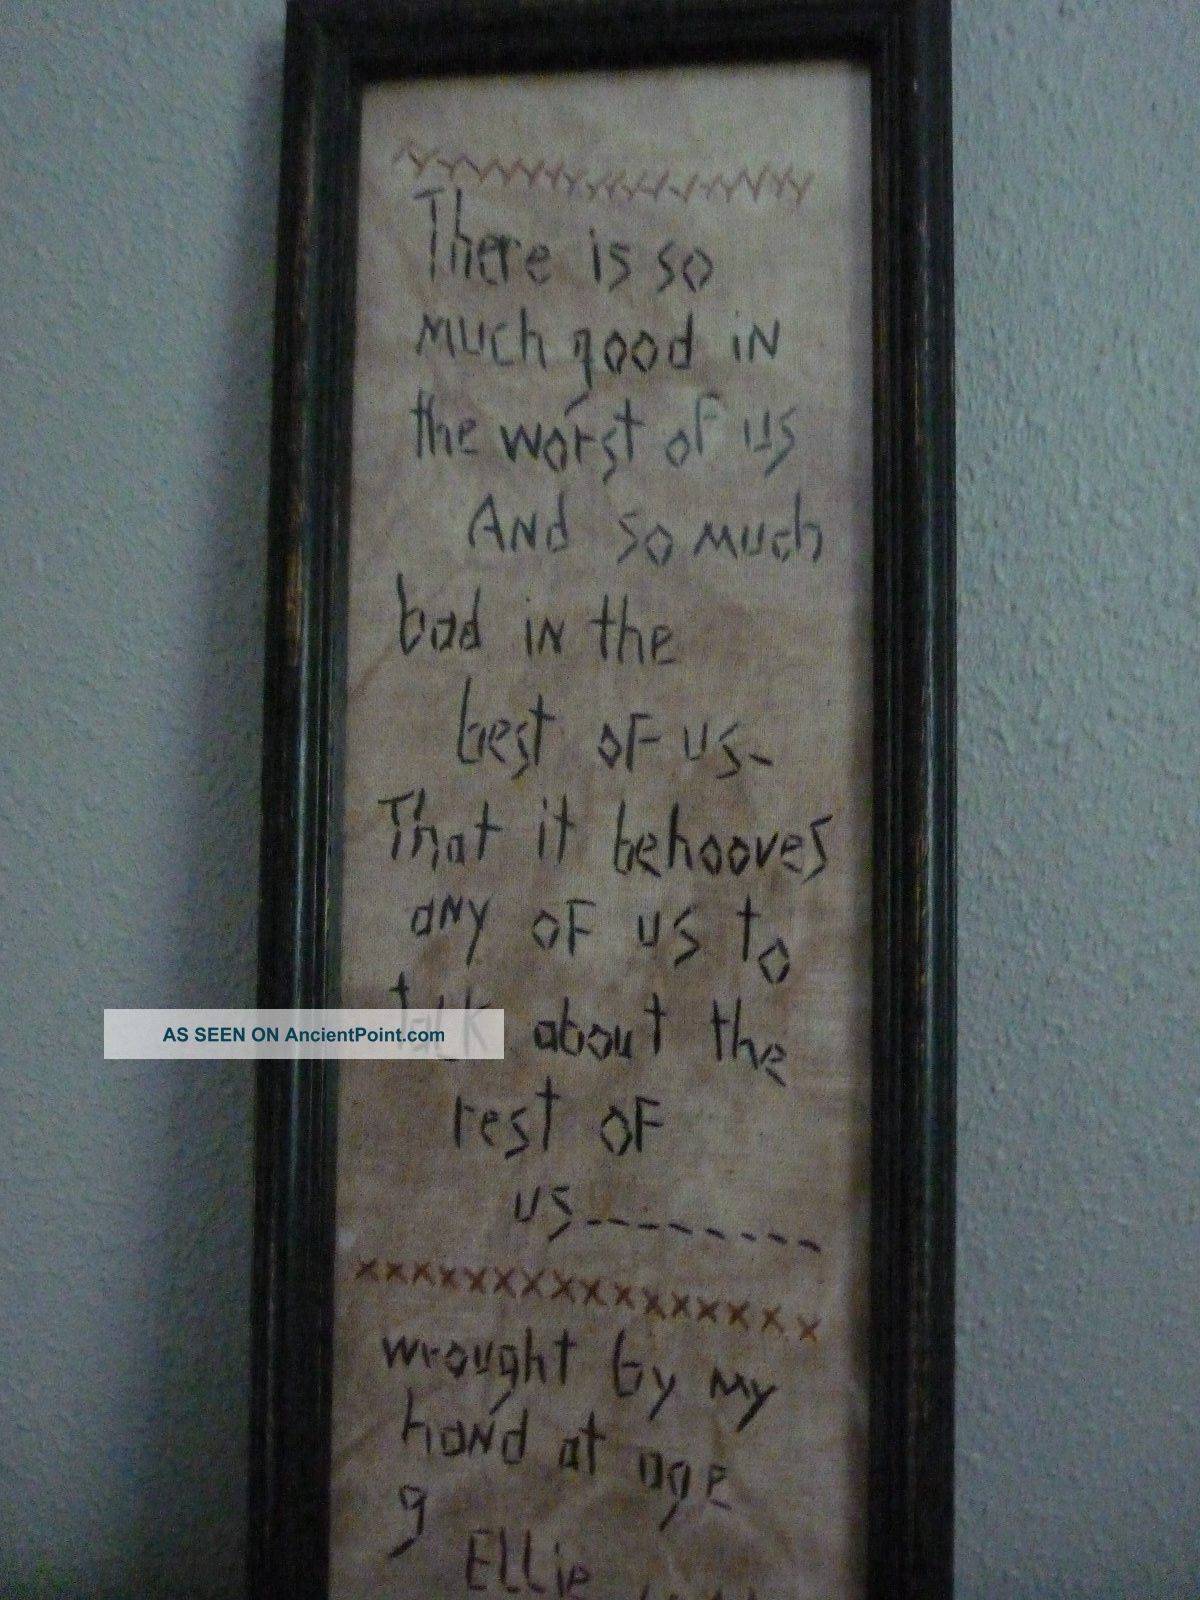 There is so
much good in
the worst of us
And so much
bad in the
best of us-
That it behooves
any of us to
talk about the
AS SEEN ON AncientPoint.com
rest of
us--------
wrought by my
hand at age
9
Ellie